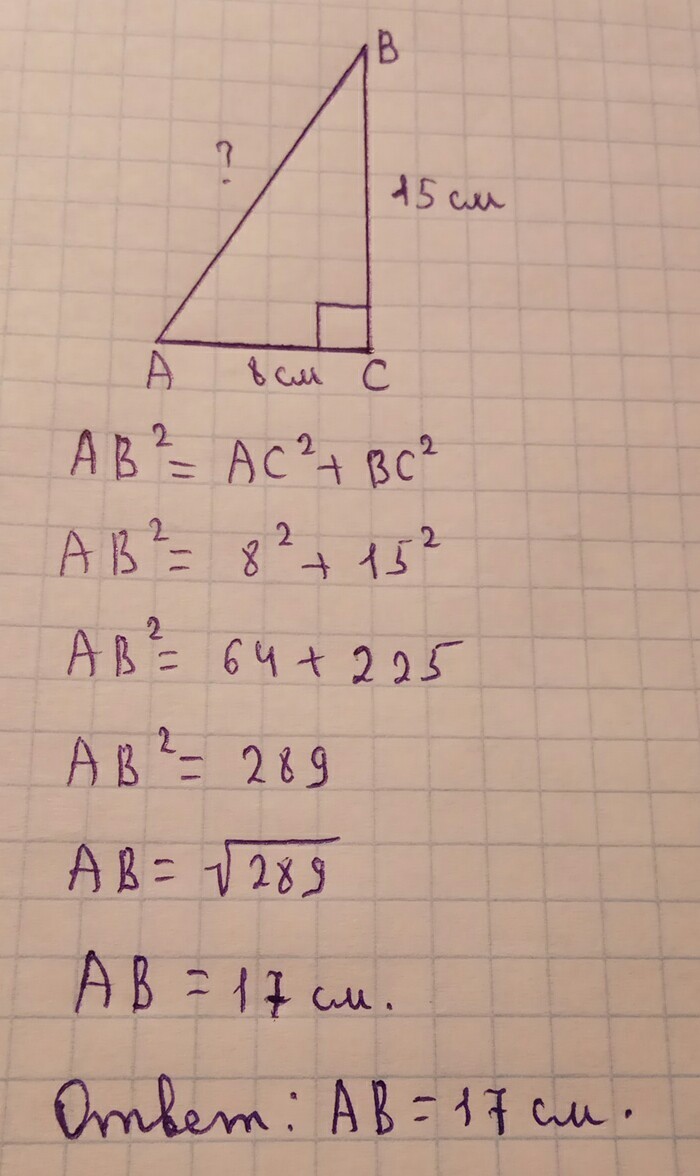 B
?
15 см
A
8 см
C
AB² = AC² + BC²
AB² = 8² + 15²
AB² = 64 + 225
AB² = 289
AB = √289
AB = 17 см.
Ответ: AB = 17 см.